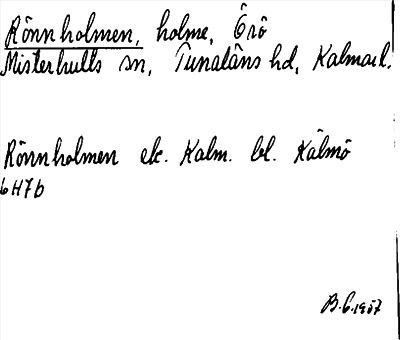 Rönnholmen, holme, Örö
Misterhults sn, Tunaläns hd, Kalmar l.
Rönnholmen ek. Kalm. bl. Kälmö
6H7b
B.G. 1957